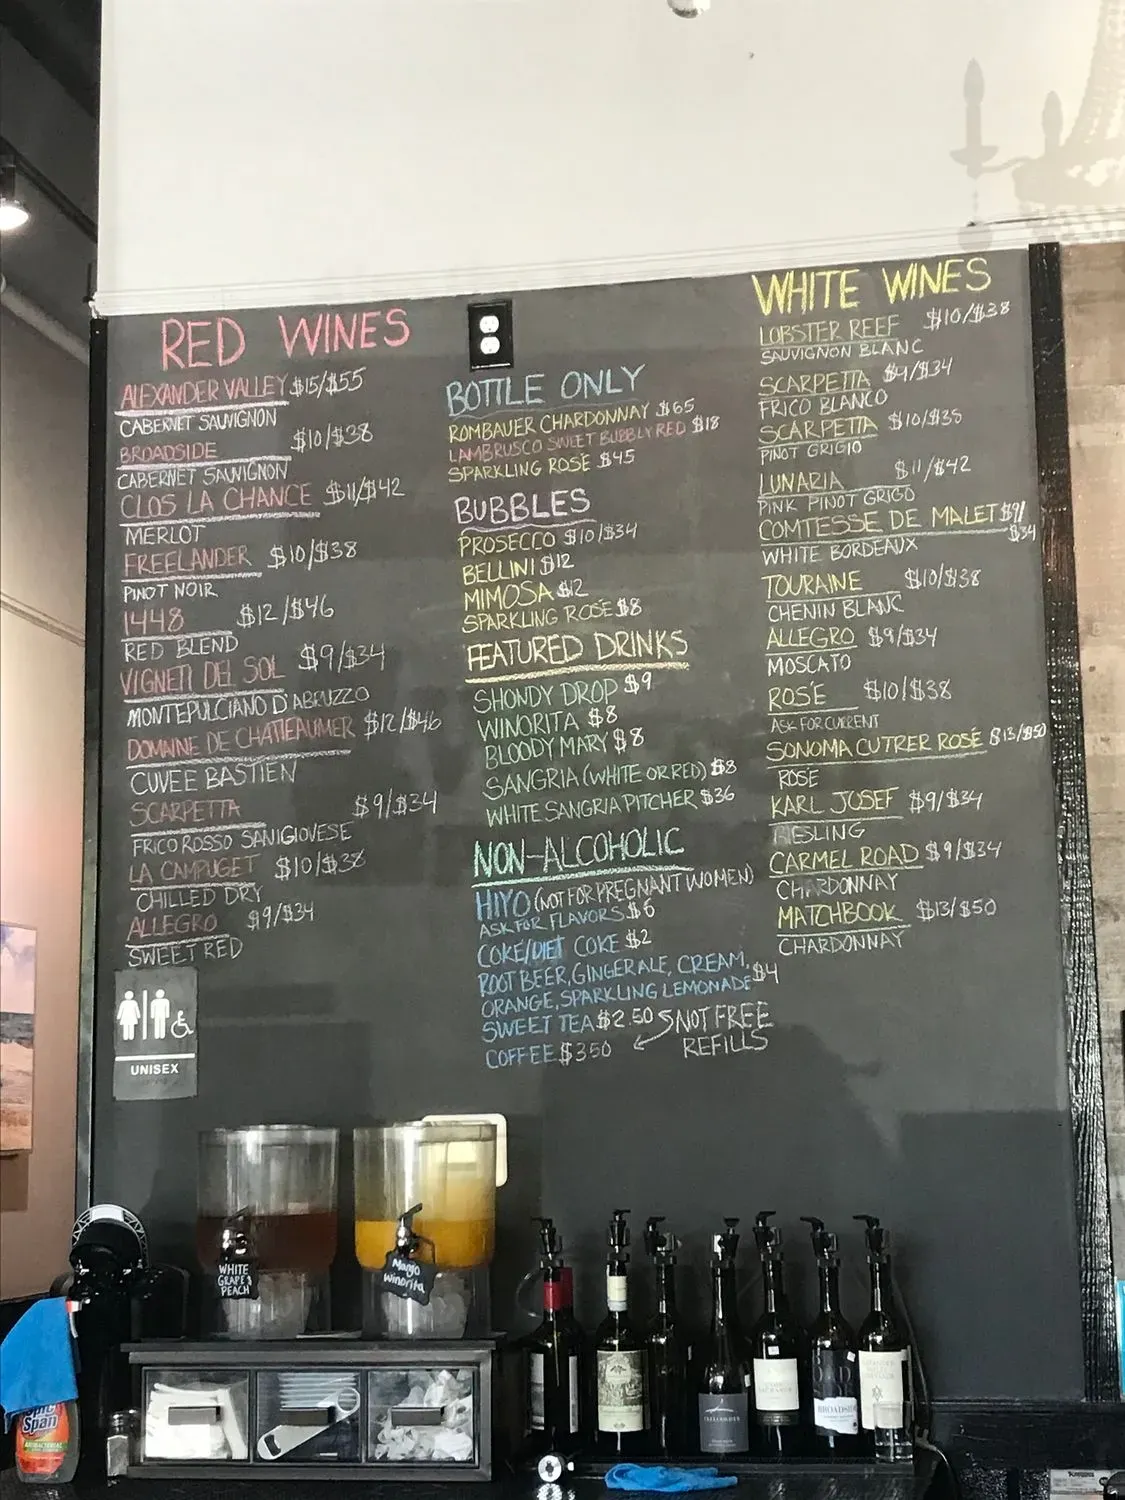 RED WINES
ALEXANDER VALLEY $15/$55
CABERNET SAUVIGNON
BROADSIDE $10/$38
CABERNET SAUVIGNON
CLOS LA CHANCE $11/$42
MERLOT
FREELANDER $10/$38
PINOT NOIR
1448 $12/$46
RED BLEND
VIGNETI DEL SOL $9/$34
MONTEPULCIANO D'ABRUZZO
DOMAINE DE CHATEAUMER $12/$46
CUVEE BASTIEN
SCARPETTA $9/$34
FRICO ROSSO SANIGIOVESE
LA CAMPUGET $10/$38
CHILLED DRY
ALLEGRO $9/$34
SWEET RED
UNISEX
BOTTLE ONLY
ROMBAUER CHARDONNAY $65
LAMBRUSCO SWEET BUBBLY RED $18
SPARKLING ROSE $45
BUBBLES
PROSECCO $10/$34
BELLINI $12
MIMOSA $12
SPARKLING ROSE $8
FEATURED DRINKS
SHONDY DROP $9
WINORITA $8
BLOODY MARY $8
SANGRIA (WHITE OR RED) $8
WHITE SANGRIA PITCHER $36
NON-ALCOHOLIC
HIYO (NOT FOR PREGNANT WOMEN)
ASK FOR FLAVORS $6
COKE/DIET COKE $2
ROOT BEER, GINGERALE, CREAM,
ORANGE, SPARKLING LEMONADE $4
SWEET TEA $2.50
COFFEE $350
NOT FREE
REFILLS
WHITE WINES
LOBSTER REEF $10/$38
SAUVIGNON BLANC
SCARPETTA $9/$34
FRICO BLANCO
SCARPETTA $10/$38
PINOT GRIGIO
LUNARIA $11/$42
PINK PINOT GRIGO
COMTESSE DE MALET $9/
$34
WHITE BORDEAUX
TOURAINE $10/$38
CHENIN BLANC
ALLEGRO $9/$34
MOSCATO
ROSE $10/$38
ASK FOR CURRENT
SONOMA CUTRER ROSE $13/$50
ROSE
KARL JOSEF $9/$34
RIESLING
CARMEL ROAD $9/$34
CHARDONNAY
MATCHBOOK $13/$50
CHARDONNAY
WHITE
GRAPE
PEACH
Mango
Winorita
Spic
Span
ANTIBACTERIAL
FREELANDER
BROADSIDE